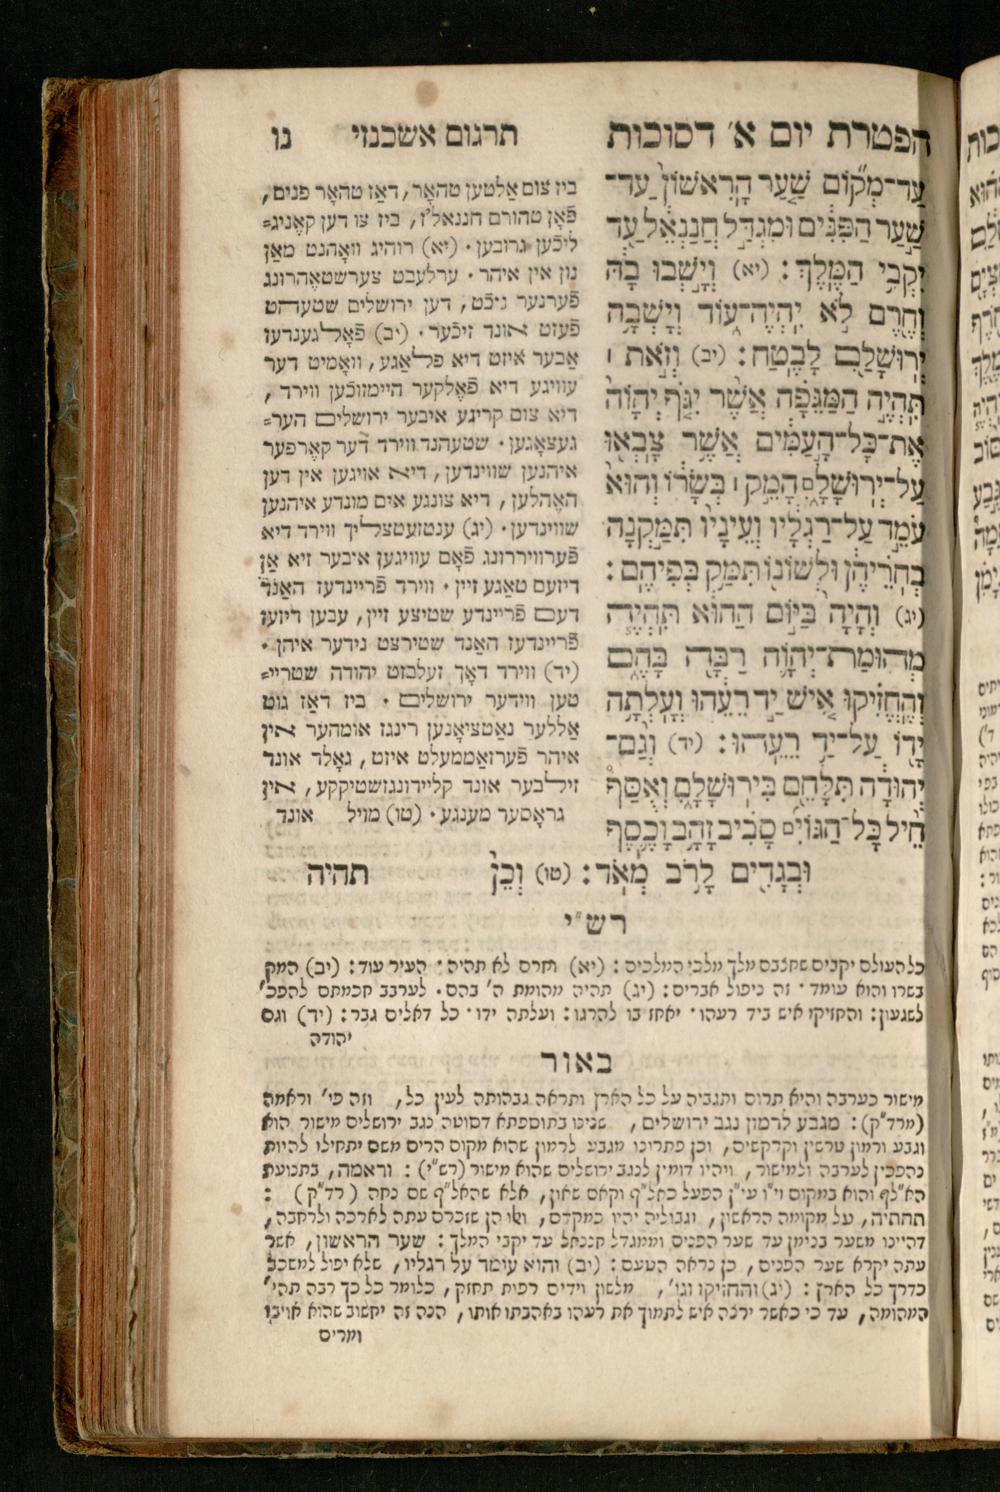 הפטרת יום א׳ דסוכות
תרגום אשכנזי
נו
עַד־מְק֞וֹם שַׁ֣עַר הָרִאשׁ֗וֹן עַד־
שַׁ֣עַר הַפִּנִּ֔ים וּמִגְדַּ֣ל חֲנַנְאֵ֔ל עַ֖ד
יִקְבֵ֥י הַמֶּֽלֶךְ: (יא) וְיָ֣שְׁבוּ בָ֔הּ
וְחֵ֖רֶם לֹ֣א יִֽהְיֶה־ע֑וֹד וְיָשְׁבָ֥ה
יְרוּשָׁלַ֖ם לָבֶֽטַח: (יב) וְזֹ֣את ׀
תִּֽהְיֶ֣ה הַמַּגֵּפָ֗ה אֲשֶׁ֨ר יִגֹּ֤ף יְהוָֹה֙
אֶת־כָּל־הָ֣עַמִּ֔ים אֲשֶׁ֥ר צָבְא֖וּ
עַל־יְרֽוּשָׁלָ֑ם הָמֵ֣ק ׀ בְּשָׂר֗וֹ וְהוּא֙
עֹמֵ֣ד עַל־רַגְלָ֔יו וְעֵינָיו֙ תִּמַּ֣קְנָה
בְחֹֽרֵיהֶ֔ן וּלְשׁוֹנ֖וֹ תִּמַּ֥ק בְּפִיהֶֽם:
(יג) וְהָיָה֙ בַּיּ֣וֹם הַה֔וּא תִּֽהְיֶ֧ה
מְהֽוּמַת־יְהוָֹ֛ה רַבָּ֖ה בָּהֶ֑ם
וְהֶחֱזִ֗יקוּ אִ֚ישׁ יַ֣ד רֵעֵ֔הוּ וְעָלְתָ֥ה
יָד֖וֹ עַל־יַ֥ד רֵעֵֽהוּ: (יד) וְגַ֨ם־
יְהוּדָ֔ה תִּלָּחֵ֖ם בִּירֽוּשָׁלָ֑ם וְאֻסַּף֩
חֵ֨יל כָּל־הַגּוֹיִ֜ם סָבִ֗יב זָהָ֥ב וָכֶ֛סֶף
וּבְגָדִ֖ים לָרֹ֥ב מְאֹֽד: (טו) וְכֵ֨ן
תהיה
ביז צום אַלטען טהאָר, דאַז טהאָר פנים,
פֿאָן טהורם חננאל׳ז, ביז צו דען קאָניג=
ליכֿען גרובען. (יא) רוהיג וואָהנט מאַן
נון אין איהר. ערלעבט צערשטאָהרונג
פֿערנער ניכֿט, דען ירושלים שטעהט
פֿעזט אונד זיכֿער. (יב) פֿאָלגענדעז
אַבער איזט דיא פּלאַגע, וואָמיט דער
עוויגע דיא פֿאָלקער היימזוכֿען ווירד,
דיא צום קריגע איבער ירושלים הער=
געצאָגען. שטעהנד ווירד דער קאָרפּער
איהנען שווינדען, דיא אויגען אין דען
האָהלען, דיא צונגע אים מונדע איהנען
שווינדען. (יג) ענטזעטצליך ווירד דיא
פֿערוויררונג פֿאָם עוויגען איבער זיא אַן
דיזעם טאַגע זיין. ווירד פֿריינדעז האַנד
דעם פֿריינדע שטיצע זיין, עבען דיזעז
פֿריינדעז האַנד שטירצט נידער איהן.
(יד) ווירד דאָך זעלבזט יהודה שטריי=
טען ווידער ירושלים. ביז דאַז גוט
אַללער נאַטציאָנען רינגז אומהער אין
איהר פֿערזאַממעלט איזט, גאָלד אונד
זילבער אונד קליידונגזשטיקקע, אין
גראָסער מענגע. (טו) מויל אונד
רש״י
כל העולם יקבים שחצבם מלך מלכי המלכים: (יא) וחרם לא תהיה. העיר עוד: (יב) המק
בשרו והוא עומד. זה ניפול אברים: (יג) תהיה מהומת ה׳ בהם. לערבב חכמתם להפכ׳
לשגעון: והחזיקו איש ביד רעהו. יאחזו בו להרגו: ועלתה ידו. כל דאלים גבר: (יד) וגם
יהודה
באור
מישור כערבה והיא תרום ותגביה על כל הארץ ותראה גבהותה לעין כל, וזה פי׳ וראמה
(מרד״ק): מגבע לרמון נגב ירושלים, שנינו בתוספתא דסוטה נגב ירושלים מישור הוא
וגבע ורמון טרשין וקדקשים, וכן פתרונו מגבע לרמון שהוא מקום הרים משם יתחילו להיות
נהפכין לערבה ולמישור, ויהיו דומין לנגב ירושלים שהוא מישור (רש״י): וראמה, בתנועת
האל״ף והוא במקום וי״ו עי״ן הפעל כאל״ף וקאם שאון, אלא שהאל״ף שם נחה (רד״ק):
תחתיה, על מקומה הראשון, וגבוליה יהיו כמקדם, ואלו הן שזכרם עתה לארכה ולרחבה,
דהיינו משער בנימן עד שער הפנים וממגדל חננאל עד יקבי המלך: שער הראשון, אשר
עתה יקרא שער הפנים, כן נראה הטעם: (יב) והוא עומד על רגליו, שלא יפול למשכב
כדרך כל הארץ: (יג) והחזיקו וגו׳, מלשון וידים רפות תחזק, כלומר כל כך רבה תהי׳
המהומה, עד כי כאשר ירצה איש לתמוך את רעהו באהבתו אותו, הנה זה יחשוב שהוא אויבו
ומרים